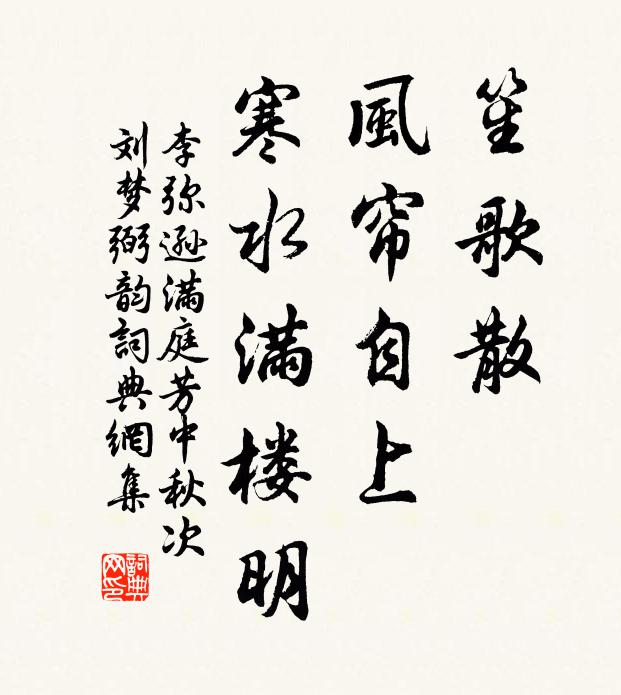 笙歌散
風帘自上
寒水滿楼明
李弥逊滿庭芳中秋次
刘梦弼韵詞典網集
詞典
网印